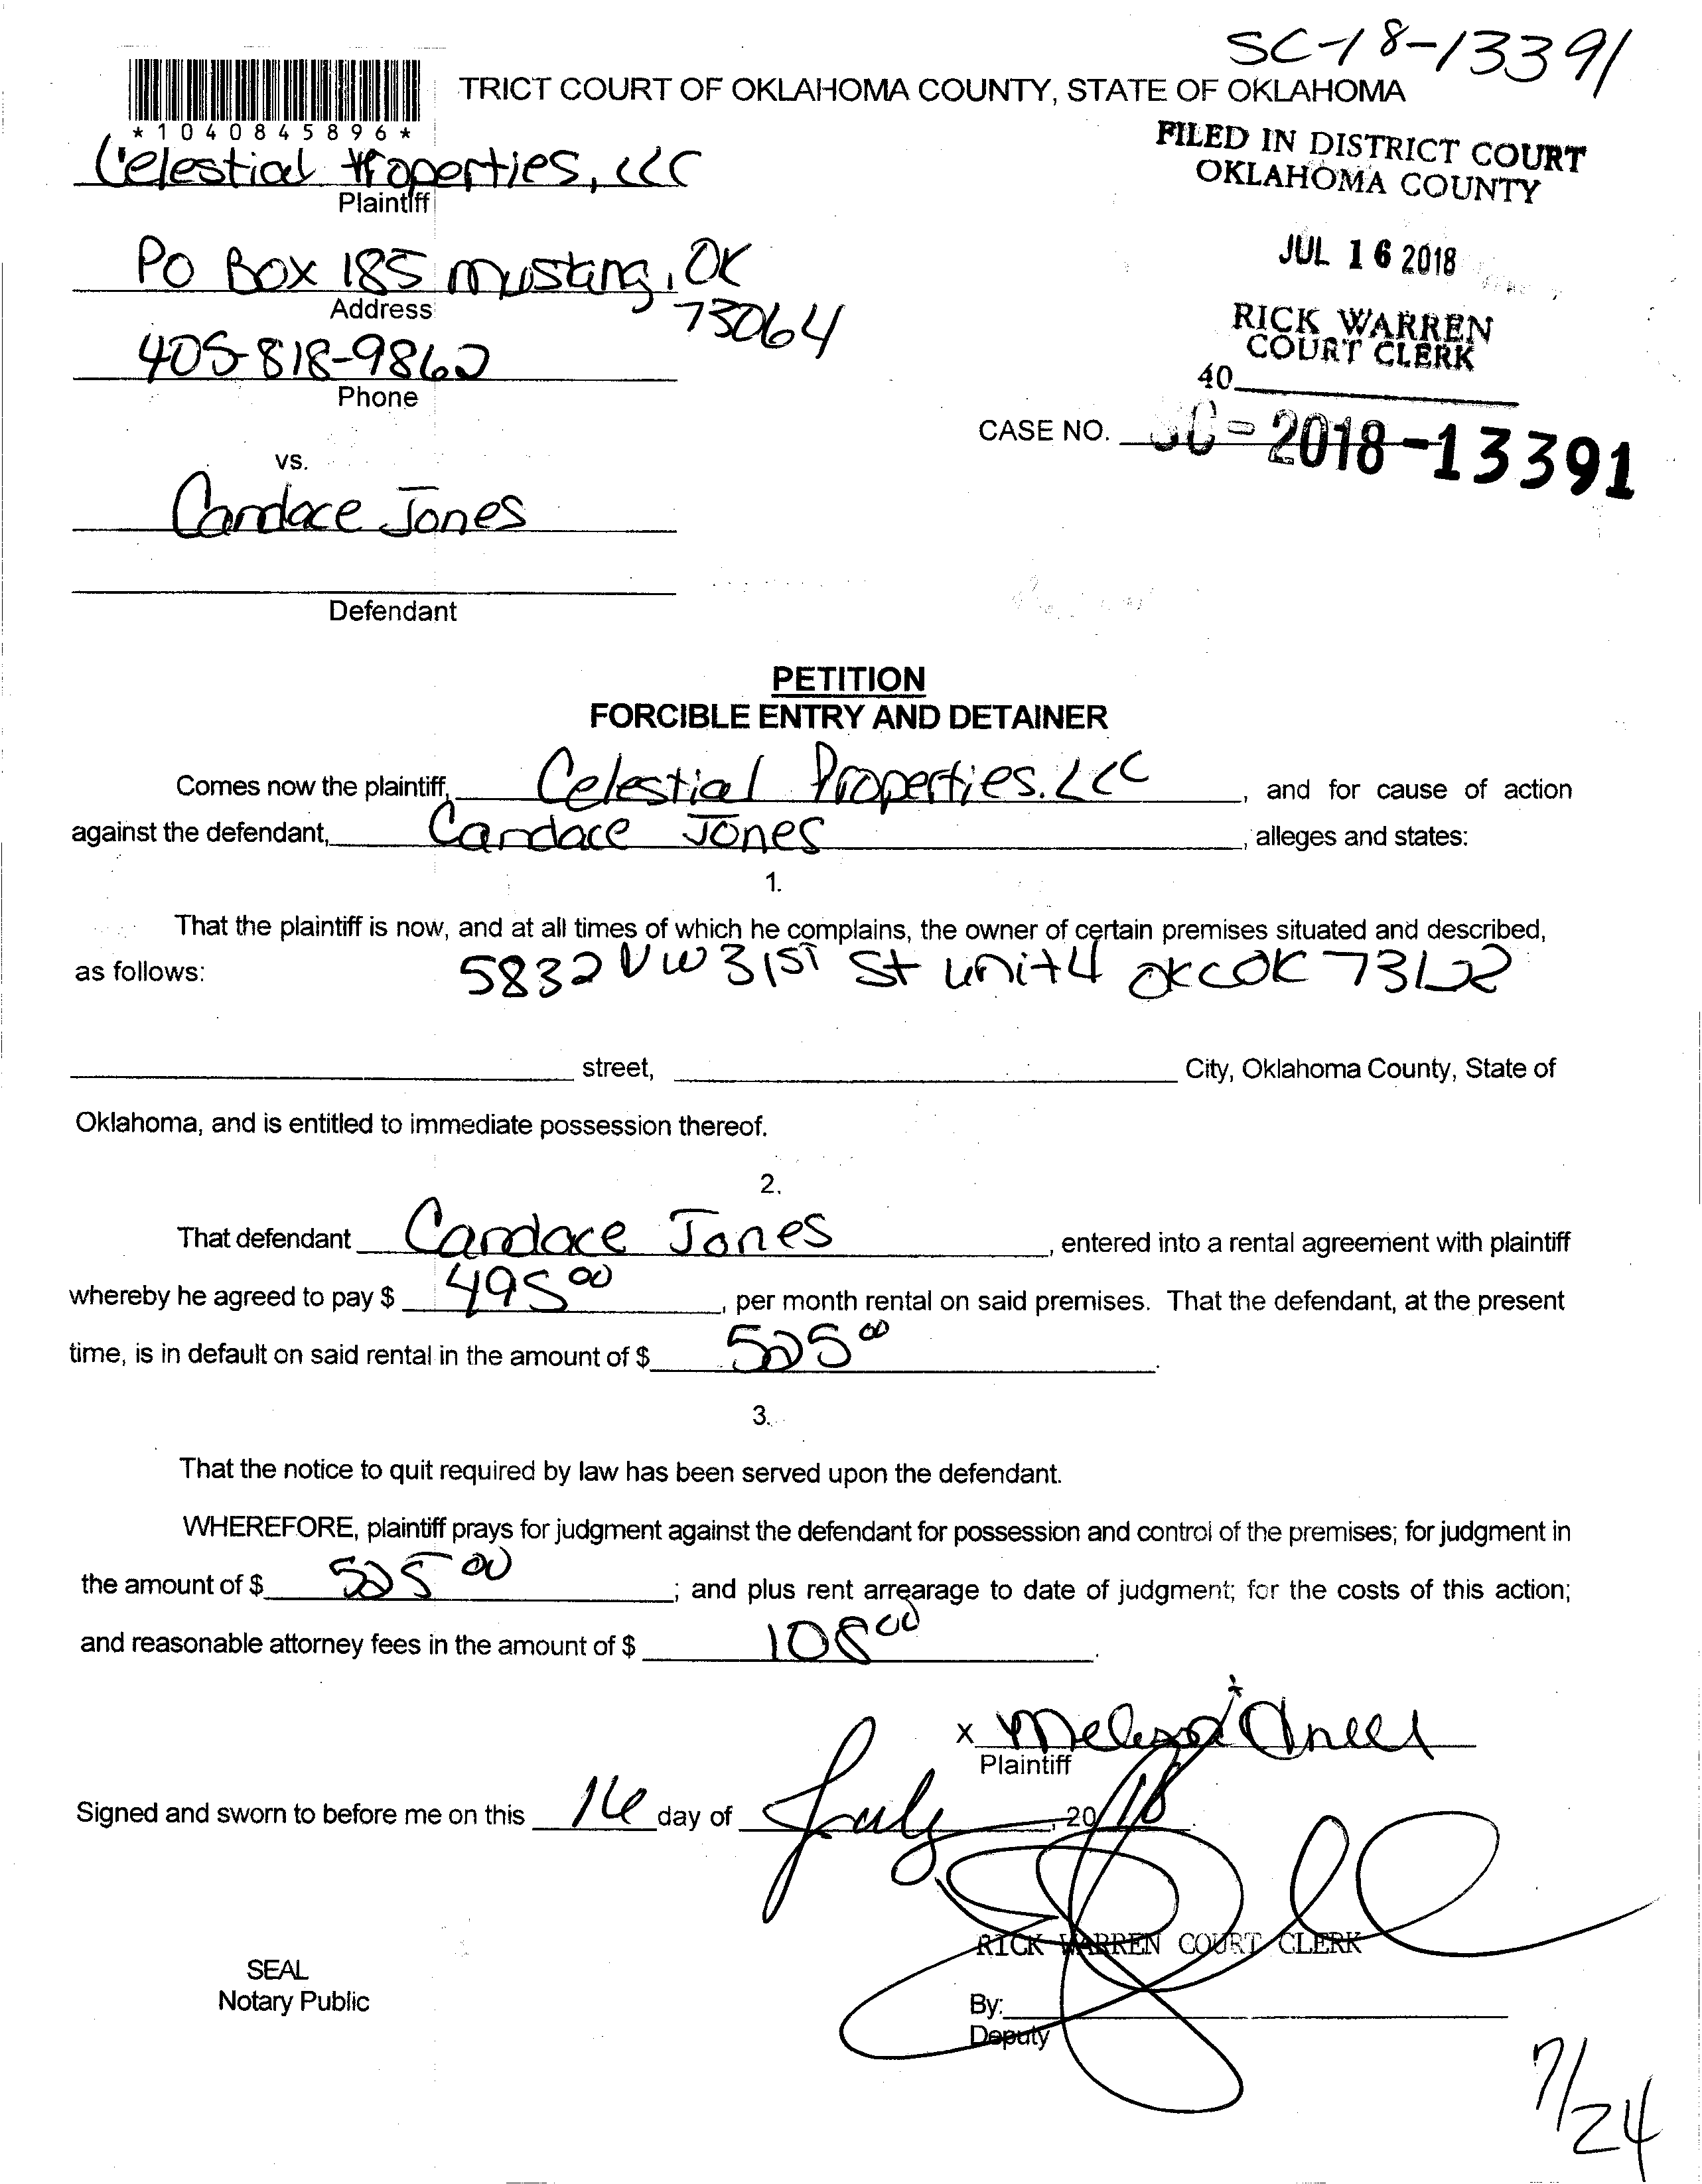 SC-18-13391
TRICT COURT OF OKLAHOMA COUNTY, STATE OF OKLAHOMA
*1040845896*
FILED IN DISTRICT COURT
OKLAHOMA COUNTY
Celestial Properties, LLC
Plaintiff
PO Box 185 Mustang, OK
73064
Address
JUL 16 2018
RICK WARREN
COURT CLERK
40
405-818-9862
Phone
CASE NO. SC-2018-13391
vs.
Candace Jones
Defendant
PETITION
FORCIBLE ENTRY AND DETAINER
Comes now the plaintiff, Celestial Properties. LLC, and for cause of action
against the defendant, Candace Jones, alleges and states:
1.
That the plaintiff is now, and at all times of which he complains, the owner of certain premises situated and described,
as follows: 5832 NW 31st St Unit 4 OKC OK 73122
street, City, Oklahoma County, State of
Oklahoma, and is entitled to immediate possession thereof.
2.
That defendant Candace Jones, entered into a rental agreement with plaintiff
whereby he agreed to pay $ 495 00, per month rental on said premises. That the defendant, at the present
time, is in default on said rental in the amount of $ 525 00.
3.
That the notice to quit required by law has been served upon the defendant.
WHEREFORE, plaintiff prays for judgment against the defendant for possession and control of the premises; for judgment in
the amount of $ 525 00; and plus rent arrearage to date of judgment; for the costs of this action;
and reasonable attorney fees in the amount of $ 108 00.
x Melissa
Plaintiff
Signed and sworn to before me on this 16 day of July, 20 18.
RICK WARREN COURT CLERK
SEAL
Notary Public
By:
Deputy
7/24